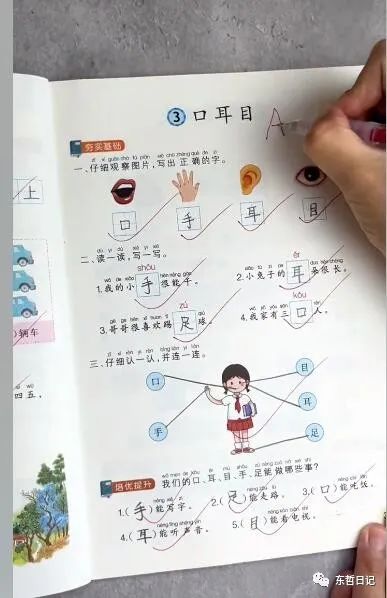 ③ 口耳目
A
夯实基础
一、仔细观察图片，写出正确的字。
口 手 耳 目
二、读一读，写一写。
shǒu ěr
1.我的小手很能干。 2.小兔子的耳朵很长。
zú kǒu
3.哥哥很喜欢踢足球。 4.我家有三口人。
三、仔细认一认，并连一连。
口 目
耳
手 足
培优提升 我们的口、耳、目、手、足能做哪些事？
1.(手)能写字。 2.(足)能走路。 3.(口)能吃饭。
4.(耳)能听声音。 5.(目)能看电视。
上
)辆车
四五，
东哲日记